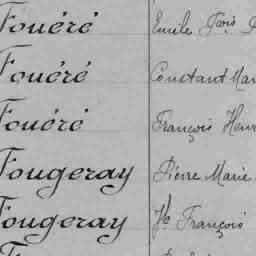 Fouéré Emile Fçois
Fouéré Constant Mar
Fouéré François Henr
Fougeray Pierre Marie
Fougeray Vte François